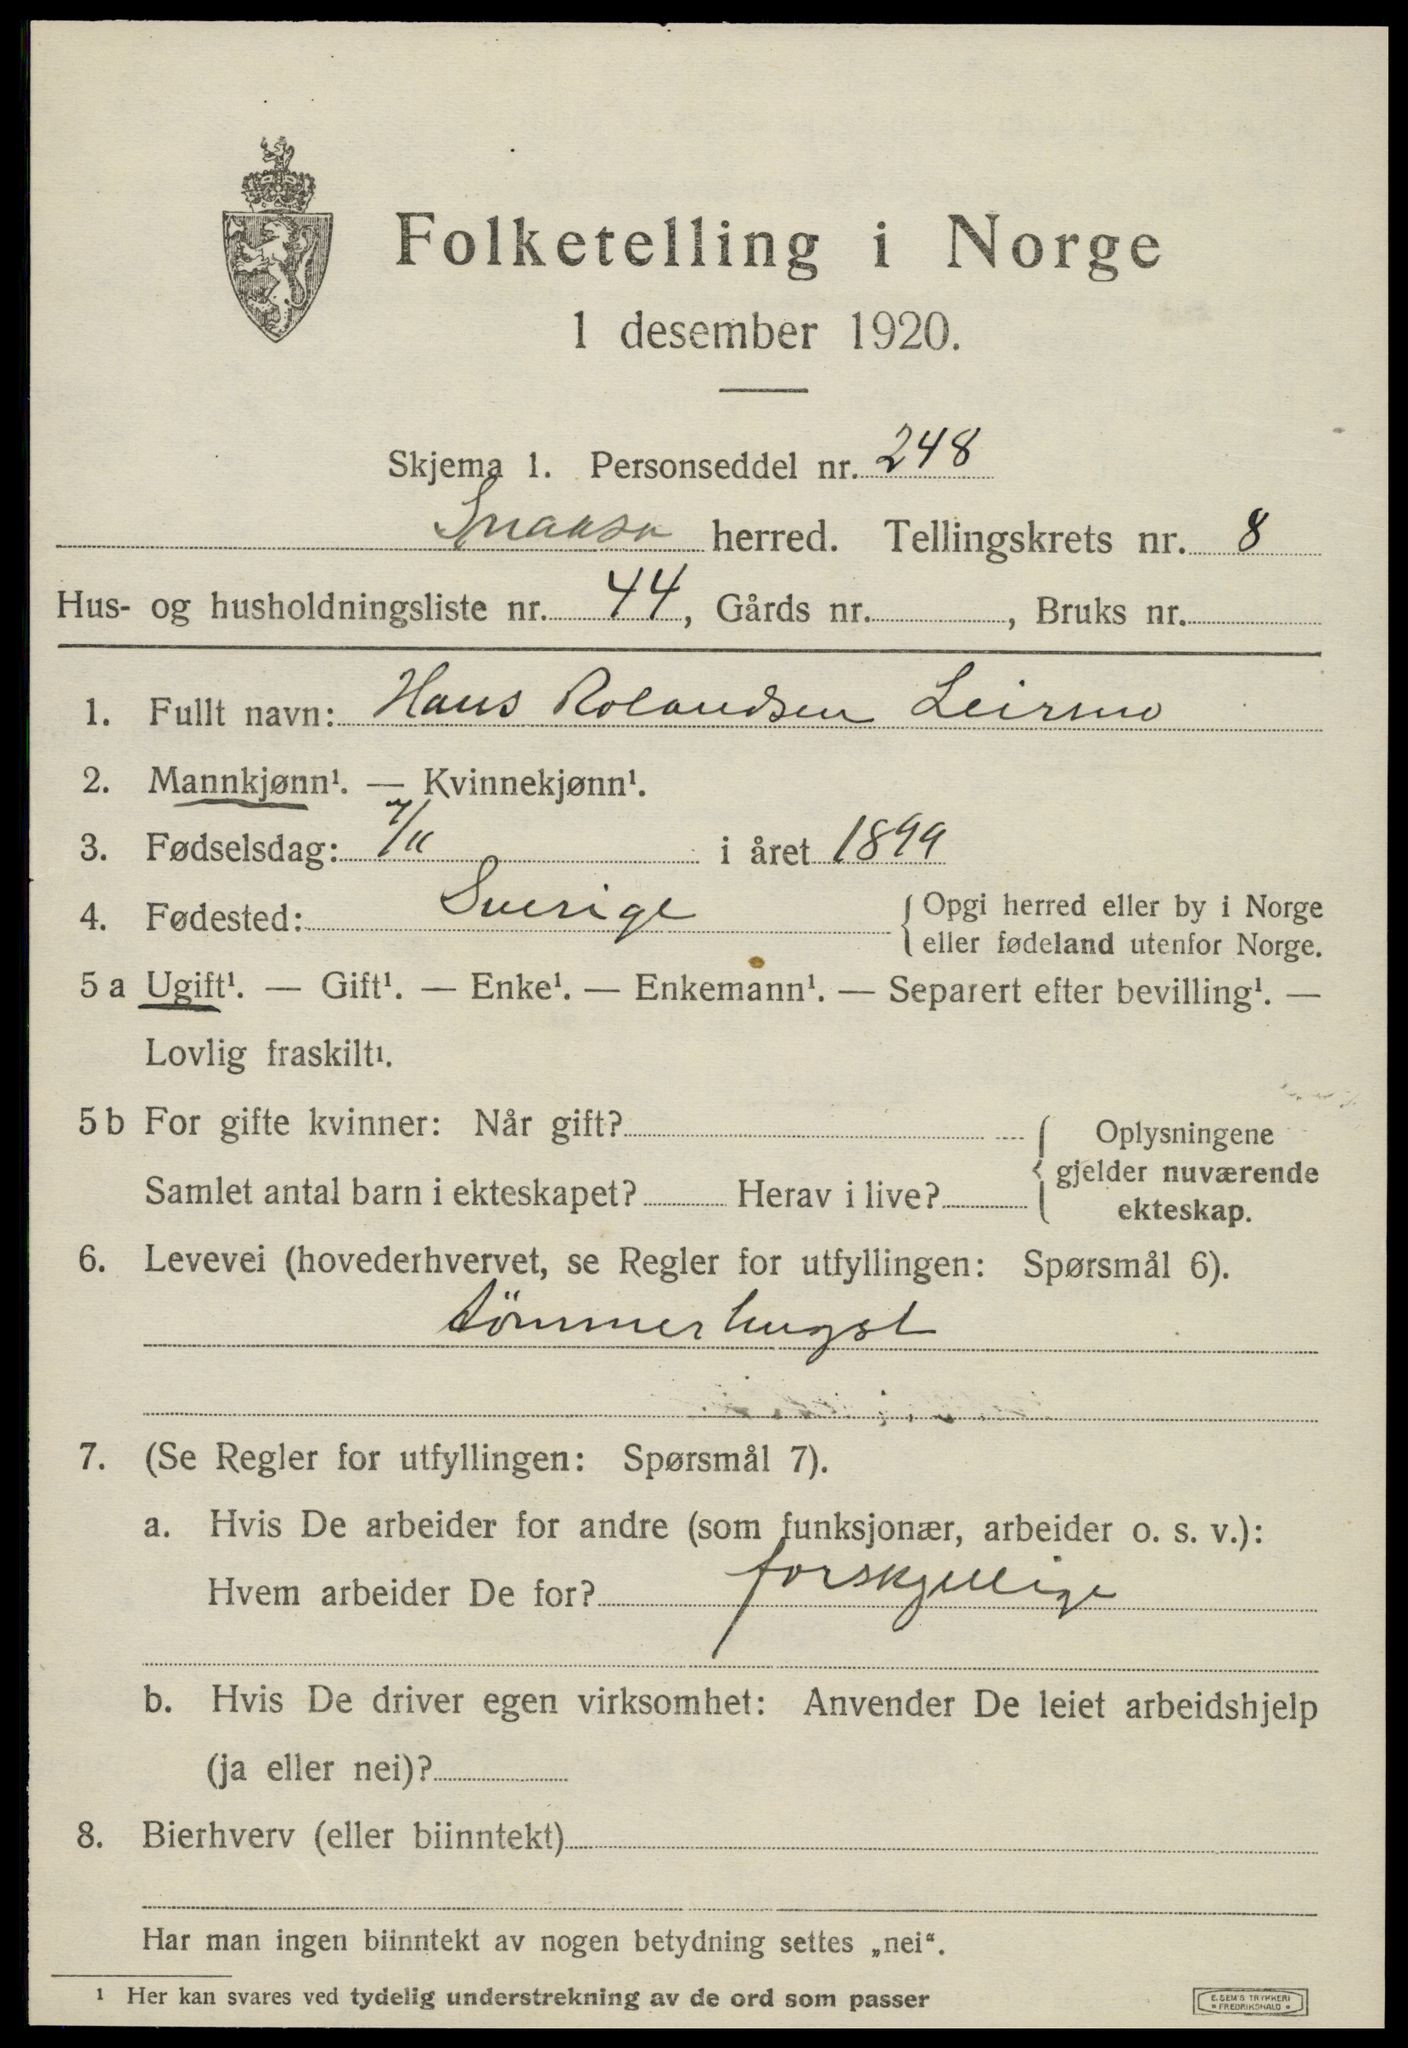 Folketelling i Norge
1 desember 1920.
Skjema 1. Personseddel nr. 248
Snaasa herred. Tellingskrets nr. 8
Hus- og husholdningsliste nr. 44, Gårds nr. , Bruks nr.
1. Fullt navn: Hans Rolandsen Leirmo
2. Mannkjønn¹. — Kvinnekjønn¹.
3. Fødselsdag: 7/11 i året 1899
4. Fødested: Sverige {Opgi herred eller by i Norge
eller fødeland utenfor Norge.
5 a Ugift¹. — Gift¹. — Enke¹. — Enkemann¹. — Separert efter bevilling¹. —
Lovlig fraskilt¹.
5 b For gifte kvinner: Når gift?
Samlet antal barn i ekteskapet? Herav i live?
{Oplysningene
gjelder nuværende
ekteskap.
6. Levevei (hovederhvervet, se Regler for utfyllingen: Spørsmål 6).
tömmerhugst
7. (Se Regler for utfyllingen: Spørsmål 7).
a. Hvis De arbeider for andre (som funksjonær, arbeider o. s. v.):
Hvem arbeider De for? forskjellige
b. Hvis De driver egen virksomhet: Anvender De leiet arbeidshjelp
(ja eller nei)?
8. Bierhverv (eller biinntekt)
Har man ingen biinntekt av nogen betydning settes „nei“.
¹ Her kan svares ved tydelig understrekning av de ord som passer
E. SEM'S TRYKKERI
* FREDRIKSHALD *